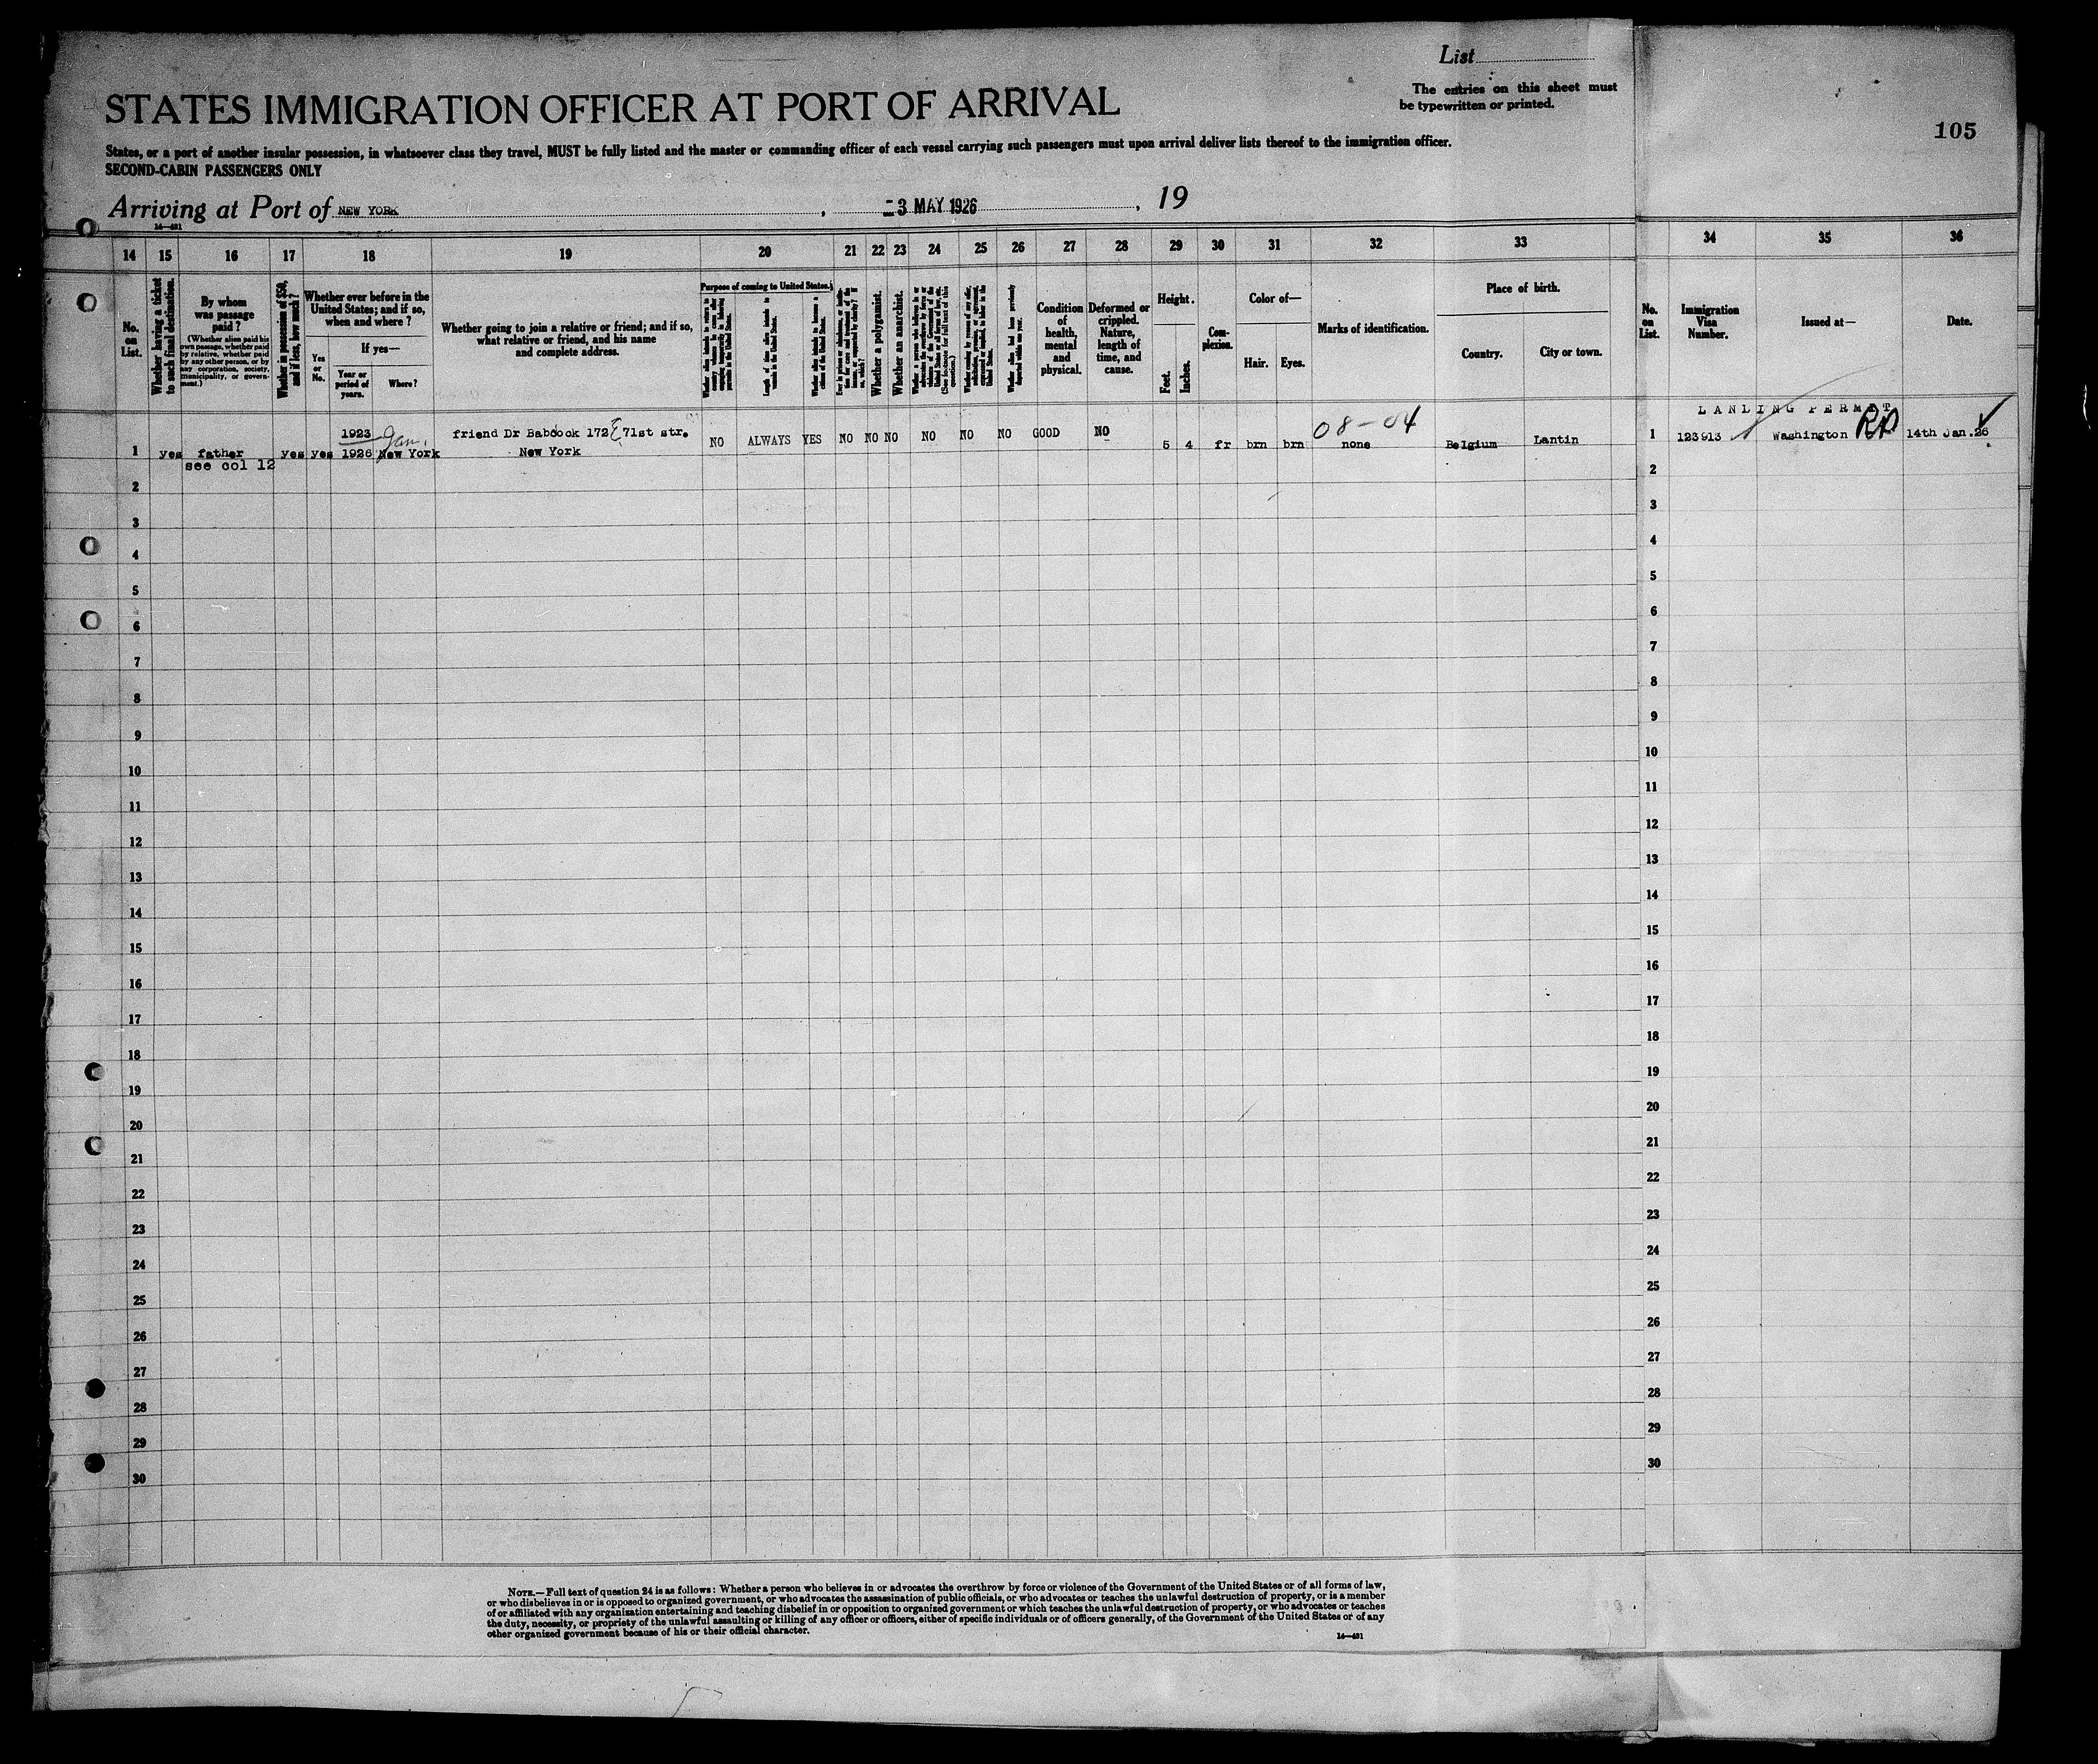 List
The entries on this sheet must
be typewritten or printed.
STATES IMMIGRATION OFFICER AT PORT OF ARRIVAL
105
States, or a port of another insular possession, in whatsoever class they travel, MUST be fully listed and the master or commanding officer of each vessel carrying such passengers must upon arrival deliver lists thereof to the immigration officer.
SECOND-CABIN PASSENGERS ONLY
Arriving at Port of NEW YORK, 3 MAY 1926, 19
14—431
14 15 16 17 18 19 20 21 22 23 24 25 26 27 28 29 30 31 32 33 34 35 36
No. on List.
Whether having a ticket to such final destination.
By whom was passage paid?
(Whether alien paid his own passage, whether paid by relative, whether paid by any other person, or by any corporation, society, municipality, or government.)
Whether in possession of $50, and if less, how much?
Whether ever before in the United States; and if so, when and where?
Yes or No.
If yes—
Year or period of years.
Where?
Whether going to join a relative or friend; and if so, what relative or friend, and his name and complete address.
Purpose of coming to United States.
Length of time alien intends to remain in the United States.
Whether alien intends to become a citizen of the United States.
Whether a polygamist.
Whether an anarchist.
Whether alien had been previously deported within one year.
Condition of health, mental and physical.
Deformed or crippled. Nature, length of time, and cause.
Height.
Feet.
Inches.
Complexion.
Color of—
Hair.
Eyes.
Marks of identification.
Place of birth.
Country.
City or town.
No. on List.
Immigration Visa Number.
Issued at—
Date.
LANLING PERMIT
08-04
1923 Jan. friend Dr Babcock 172 E 71st str.
1 yes father yes yes 1926 New York New York NO ALWAYS YES NO NO NO NO NO NO GOOD NO 5 4 fr brn brn none Belgium Lantin 1 123913 Washington RP 14th Jan.26
see col 12
2 2
3 3
4 4
5 5
6 6
7 7
8 8
9 9
10 10
11 11
12 12
13 13
14 14
15 15
16 16
17 17
18 18
19 19
20 20
21 21
22 22
23 23
24 24
25 25
26 26
27 27
28 28
29 29
30 30
NOTE.—Full text of question 24 is as follows: Whether a person who believes in or advocates the overthrow by force or violence of the Government of the United States or of all forms of law,
or who disbelieves in or is opposed to organized government, or who advocates the assassination of public officials, or who advocates or teaches the unlawful destruction of property, or is a member
of or affiliated with any organization entertaining and teaching disbelief in or opposition to organized government or which teaches the unlawful destruction of property, or who advocates or teaches
the duty, necessity, or propriety of the unlawful assaulting or killing of any officer or officers, either of specific individuals or of officers generally, of the Government of the United States or of any
other organized government because of his or their official character.
14—431